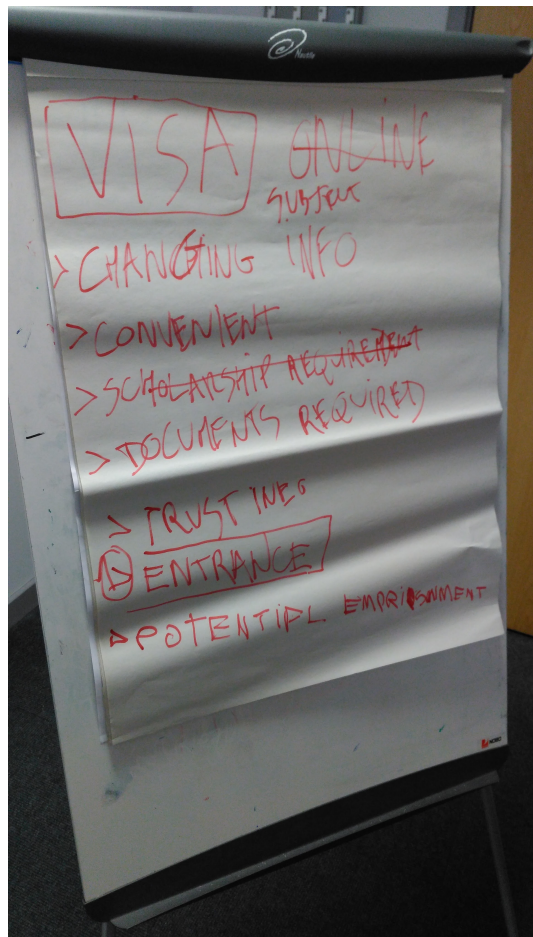 Nobo
VISA ONLINE
SUBJECT
> CHANGTING INFO
> CONVENIENT
> SCHOLARSHIP REQUIREMENT
> DOCUMENTS REQUIRED
> TRUST INFO
> ENTRANCE
> POTENTIAL EMPRISNMENT